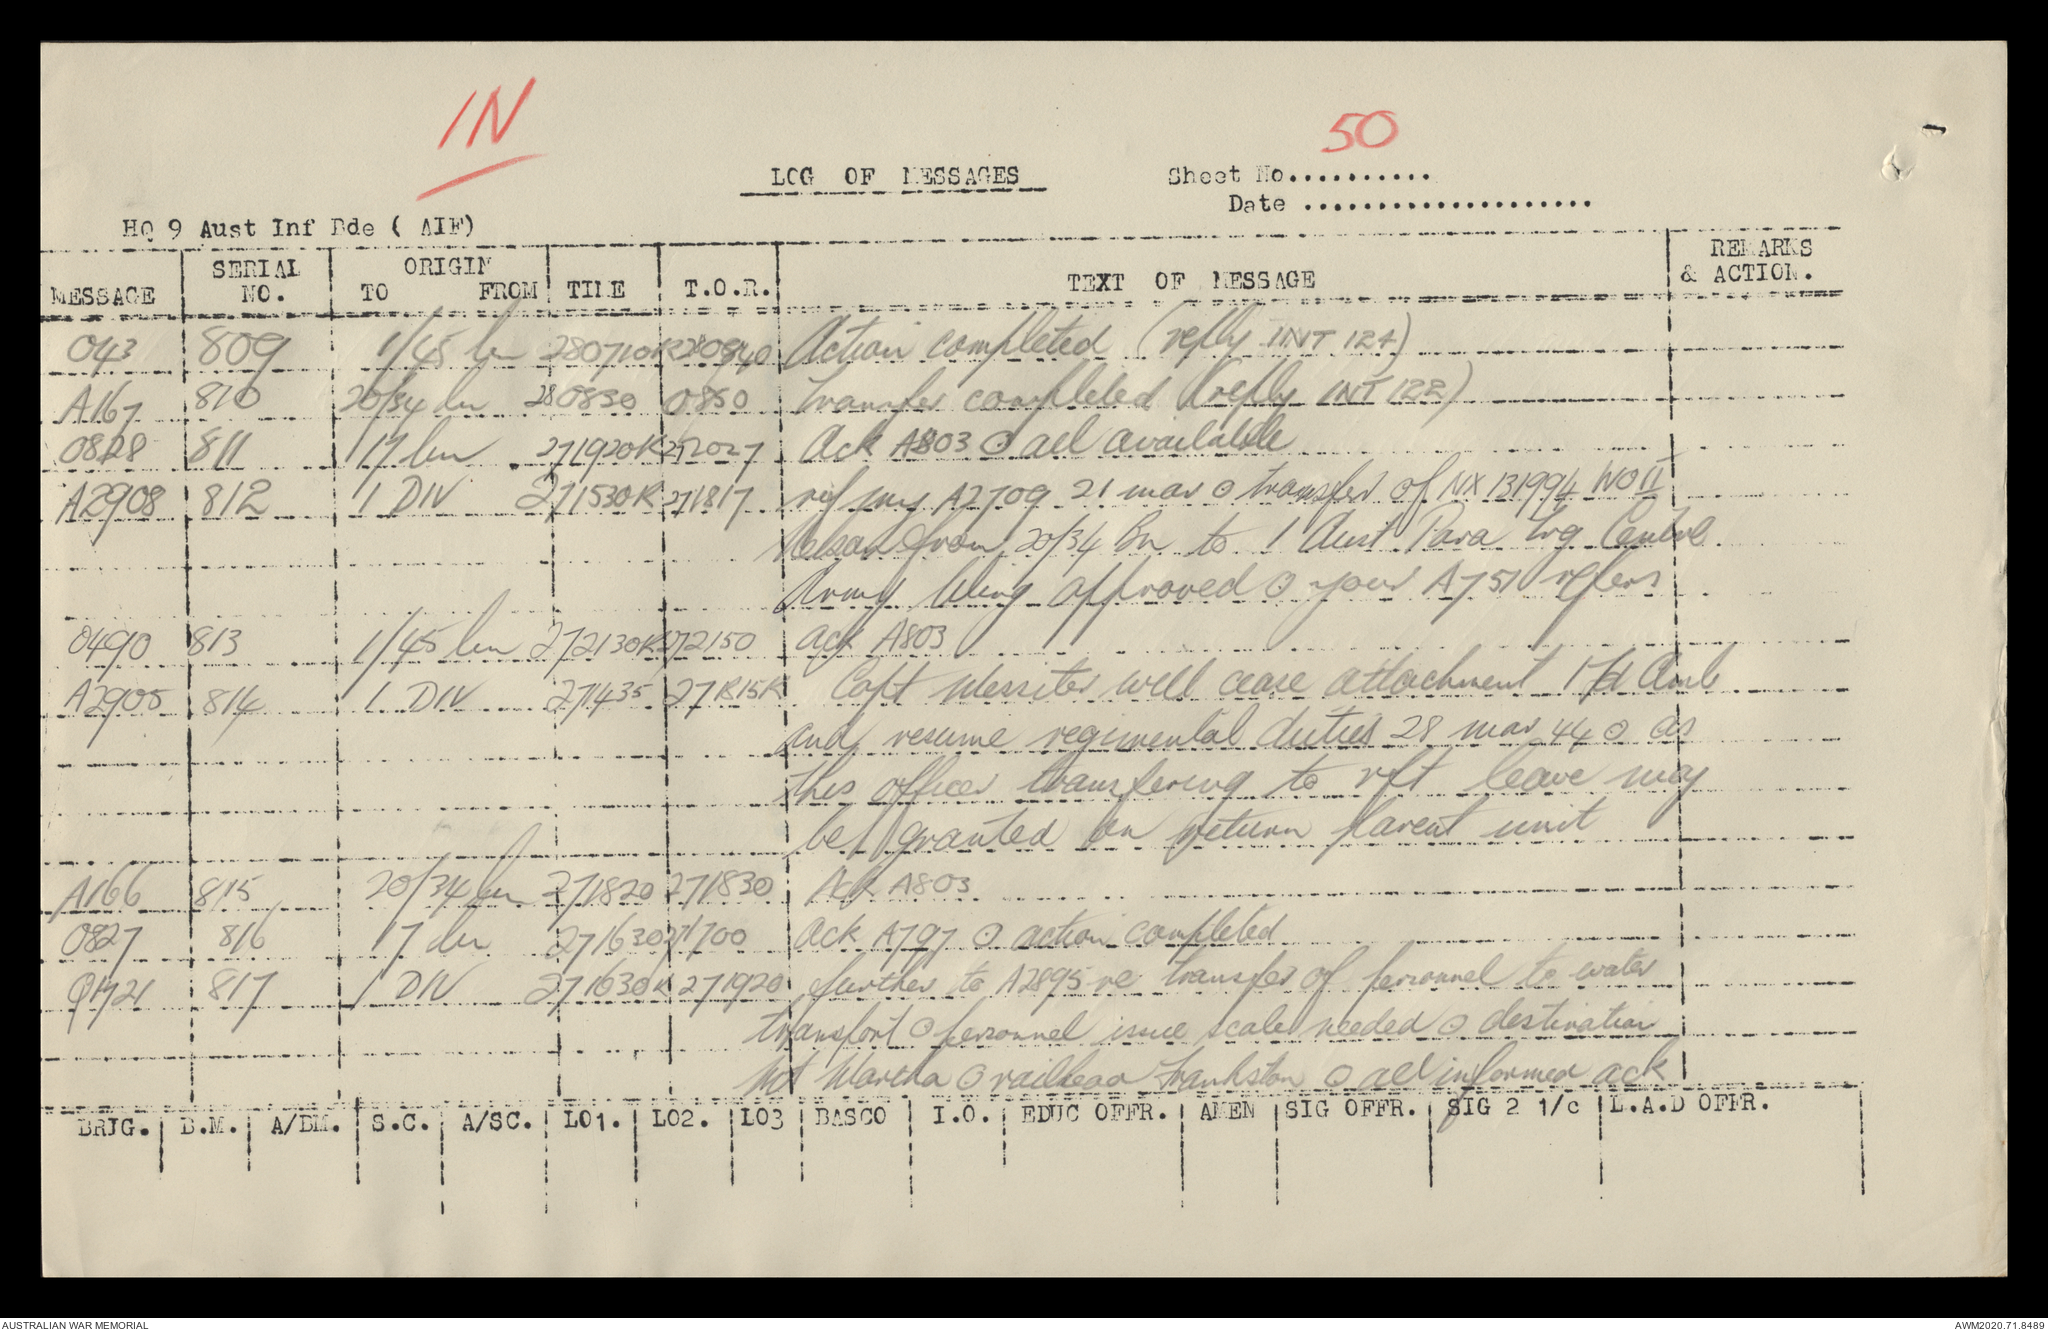 IN
50
LOG OF MESSAGES
Sheet No..........
Date ....................
HQ 9 Aust Inf Bde ( AIF)
MESSAGE SERIAL NO. ORIGIN TO FROM TIME T.O.R. TEXT OF MESSAGE REMARKS & ACTION.
043 809 1/45 bn 280710K 280840 Action completed (reply INT 124)
A167 810 20/34 bn 280830 0850 transfer completed (reply INT 122)
0828 811 17 bn 271920K 272027 Ack A803 ⊙ all available
A2908 812 1 DIV 271530K 271817 ref my A2709 21 mar ⊙ transfer of NX 131994 WO II
Nelson from 20/34 Bn to 1 Aust Para trg Centre
Army Wing approved ⊙ your A751 refers
0490 813 1/45 bn 272130K 272150 ack A803
A2905 814 1 DIV 271435 271815K Capt Messiter will cease attachment 1 Fd Amb
and resume regimental duties 28 mar 44 ⊙ as
this officer transfering to rft leave may
be granted on return parent unit
A166 815 20/34 bn 271820 271830 Ack A803
0827 816 17 bn 271630 271700 ack A797 ⊙ action completed
Q1721 817 1 DIV 271630K 271920 further to A2895 re transfer of personnel to water
transport ⊙ personnel issue scale needed ⊙ destination
Mt Martha ⊙ railhead Frankston ⊙ all informed ack
BRIG. B.M. A/BM. S.C. A/SC. LO1. LO2. LO3 BASCO I.O. EDUC OFFR. AMEN SIG OFFR. SIG 2 1/c L.A.D OFFR.
AUSTRALIAN WAR MEMORIAL AWM2020.71.8489